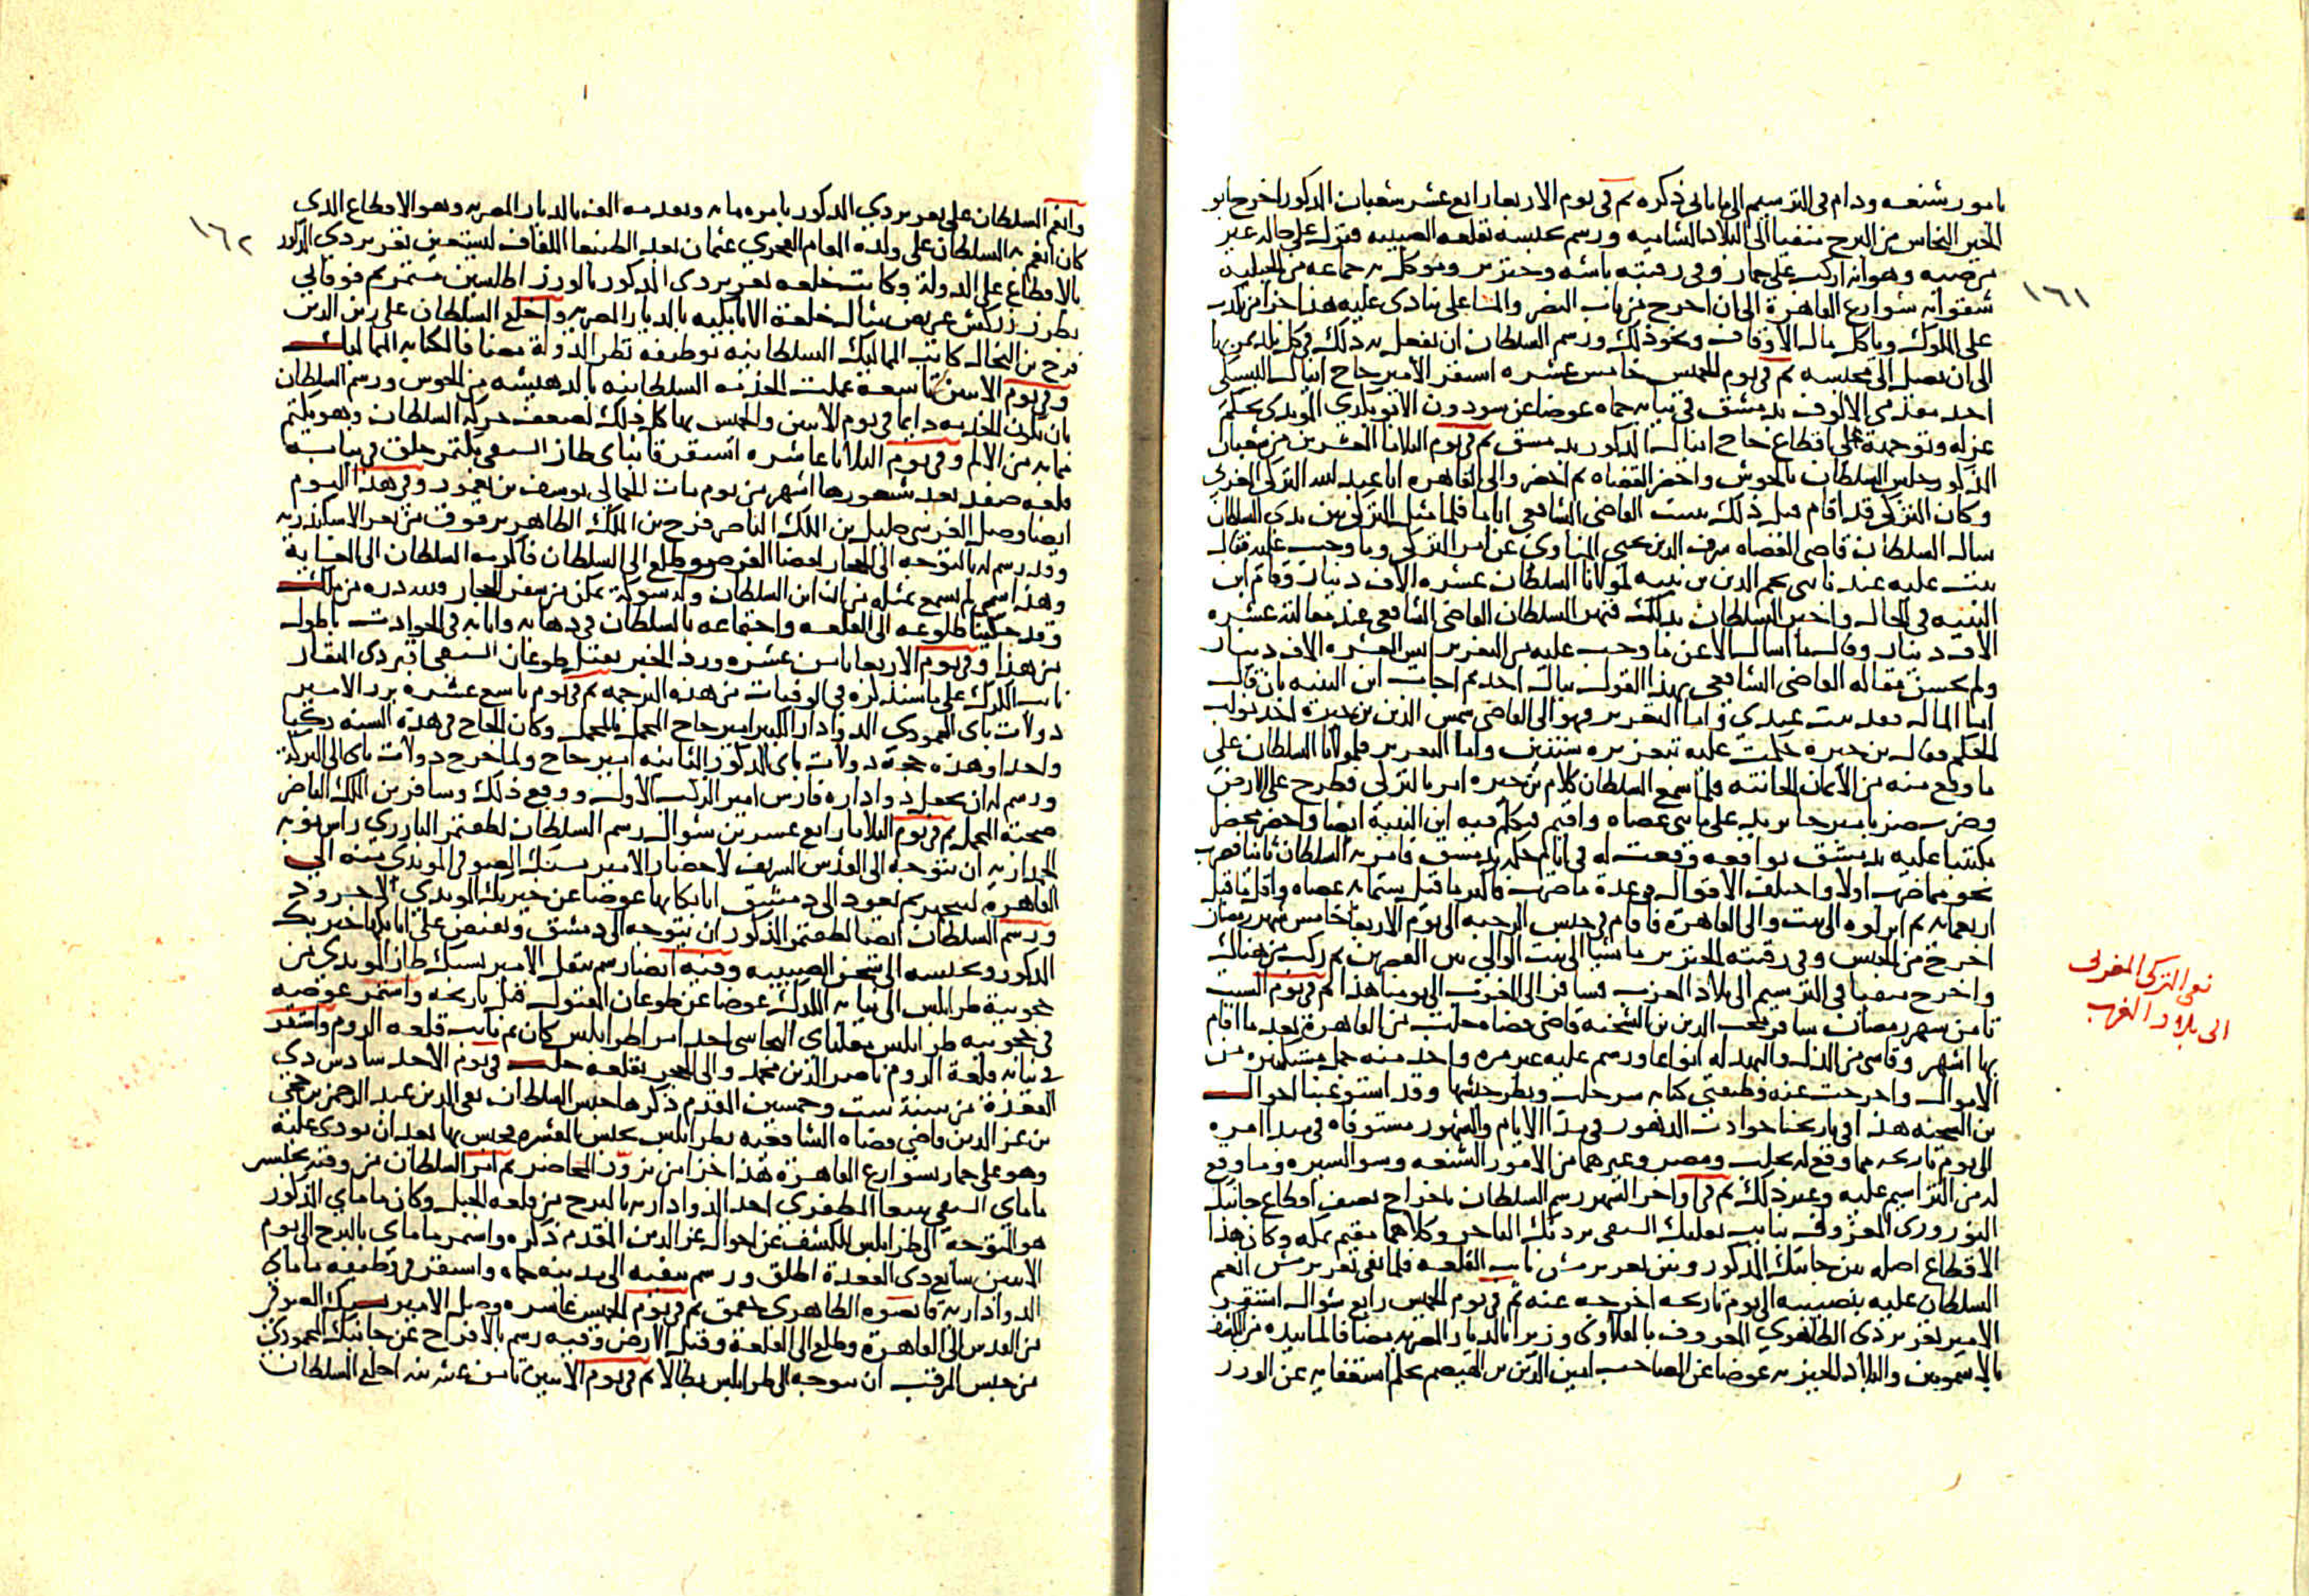 بامور شنعه ودام في الترسيم الى ما ياتي ذكره ثم في يوم الاربعا رابع عشر شعبان المذكور اخرج ابو
الخير النحاس من البرج منفيا الى البلاد الشاميه ورسم بحبسه بقلعه الصبيبه فنزل على حاله غير
مرضيه وهو انه اركب على حمار وفي رقبته باشه وجنزير وموكل به جماعه من الجبليه
شقوا به شوارع القاهرة الى ان اخرج من باب النصر والمشاعلي ينادي عليه هذا جزا من يكدب
على الملوك وياكل مال الاوقاف ونحو ذلك ورسم السلطان ان يفعل به ذلك في كل بلد يمر بها
الى ان يصل الى محبسه ثم في يوم الخميس خامس عشره استقر الامير حاج اينال اليشبكي
احد مقدمي الالوف بدمشق في نيابه حماه عوضا عن سودون الابوبكري المويدي بحكم
عزله وتوجهه على اقطاع حاج اينال المذكور بدمشق ثم في يوم الثلاثا العشرين من شعبان
المذكور جلس السلطان بالحوش واحضر القضاه ثم احضر والي القاهره ابا عبد الله التركي المغربي
وكان التركي قد اقام قبل ذلك ببيت القاضي الشافعي اياما فلما مثل التركي بين يدي السلطان
سال السلطان قاضي القضاه شرف الدين يحيى المناوي عن امر التركي وما وجب عليه فقال
ثبت عليه عند نائبي نجم الدين بن نبيه لمولانا السلطان عشره الاف دينار وقام ابن
النبيه في الحال واخبر السلطان بذلك فنهر السلطان القاضي الشافعي عند مقالته عشره
الاف دينار وقال ما اسال الا عن ما وجب عليه من التعزير ليس العشره الاف دينار
ولم يحسن مقاله القاضي الشافعي بهذا القول ببال احد ثم اجاب ابن النبيه بان قال
اما المال فقد ثبت عندي واما التعزير فهو الى القاضي شمس الدين بن خيرة احد نواب
الحكم فقال بن خيره حكمت عليه بتعزيره سنتين واما التعزير فلمولانا السلطان على
ما وقع منه من الايمان الحانثه فلما سمع السلطان كلام بن خيره امر بالتركي فطرح على الارض
وضرب ضربا مبرحا يزيد على مائتي عصاه واقيم فتكلم فيه ابن النبيه ايضا واحضر محضر
مكتتبا عليه بدمشق بواقعه وقعت له في ايام حكمه بدمشق فامر به السلطان ثانيا فضرب
نحو مما ضرب اولا واختلف الاقوال في عدة ما ضرب فاكثر ما قيل ستمايه عصاه واقل ما قيل
اربعمايه ثم انزلوه الى بيت والي القاهرة فاقام في حبس الرحبه الى يوم الاربعا خامس شهر رمضان
اخرج من الحبس وفي رقبته الجنزير ماشيا الى بيت الوالي بين القصرين ثم ركب من هناك
واخرج منفيا في الترسيم الى بلاد المغرب فسافر الى المغرب الى يومنا هذا ثم في يوم السبت
ثامن شهر رمضان سافر محب الدين بن الشحنه قاضي قضاه حلب من القاهرة بعد ما اقام
بها اشهر وقاسى من الذل والبهدله انواعا ورسم عليه غير مره واخد منه جمل مستكثره من
الاموال واخرجت عنه وظيفتي كتابه سر حلب ونظر جيشها وقد استوعبنا احوال
بن الشحنه هذا في تاريخنا حوادث الدهور في مدا الايام والشهور مستوفاه في مبدا امره
الى يوم تاريخه مما وقع له بحلب ومصر وغيرهما من الامور الشنعه وسو السيره وما وقع
له من التراسيم عليه وغير ذلك ثم في اواخر الشهر رسم السلطان باخراج نصف اقطاع جانبك
النوروزي المعروف بنايب بعلبك السيفي بردبك التاجر وكلاهما مقيم بمكه وكان هذا
الاقطاع اصله بين جانبك المذكور وبين تمر برمش نايب القلعه فلما نفي تغري برمش انعم
السلطان عليه بنصيبه الى يوم تاريخه اخرجه عنه ثم في يوم الخميس رابع شوال استقر
الامير تغري بردي الظاهري المعروف بالقلاوي وزيرا بالديار المصريه مضافا لما بيده من كشف
بالاشمونين والبلاد الجيزيه عوضا عن الصاحب امين الدين بن الهيصم بحكم استعفايه عن الوزر
١٦١
نفي التركي المغربي
الى بلاد الغرب
وانعم السلطان على تغري بردي المذكور بامره مايه وتقدمه الف بالديار المصريه وهو الاقطاع الذي
كان انعم به السلطان على ولده المقام الفخري عثمان بعد الطنبغا اللفاف ليستعين تغري بردي المذكور
بالاقطاع على الدولة وكانت خلعه تغري بردي المذكور بالوزر اطلسين متمر ثم فوقاني
بطرز زركش عريض مثال خلعة الاتابكيه بالديار المصريه واخلع السلطان على زين الدين
فرج بن النحال كاتب المماليك السلطانيه بوظيفه نظر الدولة مضافا لكتابه المماليك
وفي يوم الاثنين تاسعه عملت الخدمه السلطانيه بالدهيشه من الحوش ورسم السلطان
بان تكون الخدمه دايما في يوم الاثنين والخميس بها كل ذلك لضعف حركه السلطان وهو يكتم
ما به من الالم وفي يوم الثلاثا عاشره استقر قانباي طاز السيفي بكتمر جلق في نيابه
قلعه صفد بعد شغورها اشهر من يوم مات الجمالي يوسف بن يغمور وفي هذا اليوم
ايضا وصل الغرسي خليل بن الملك الناصر فرج بن الملك الظاهر برقوق من ثغر الاسكندريه
وقد رسم له بالتوجه الى الحجاز لقضا الفرض وطلع الى السلطان فاكرمه السلطان الى الغاية
وهذا شي لم نسمع بمثله من ان ابن السلطان وله شوكة يمكن من سفر الحجاز ولله دره من ملك
وقد حكينا طلوعه الى القلعه واجتماعه بالسلطان في ذهابه وايابه في الحوادث باطول
من هذا وفي يوم الاربعا ثامن عشره ورد الخبر بقتل طوغان السيفي اقبردي المنقار
نايب الكرك على ما سنذكره في الوفيات من هذه الترجمه ثم في يوم تاسع عشره برز الامير
دولات باي المحمودي الدوادار الكبير امير حاج المحمل بالمحمل وكان الحاج في هذه السنه ركبا
واحدا وهذه حجة دولات باي المذكور الثانيه امير حاج ولما خرج دولات باي الى البركة
ورسم له ان يجعل دواداره فارس امير الركب الاول ووقع ذلك وسافر بن الملك الناصر
صحبة المحمل ثم في يوم الثلاثا رابع عشرين شوال رسم السلطان لططمتمر البارزي راس نوبه
الجمداريه ان يتوجه الى القدس الشريف لاحضار الامير يشبك الصوفي المويدي منه الى
القاهرة ليتجهز ثم يعود الى دمشق اتابكا بها عوضا عن خيربك المويدي الاجرود
ورسم السلطان ايضا لططمتمر المذكور ان يتوجه الى دمشق ويقبض على اتابكها خيربك
المذكور ويحبسه الى سجن الصبيبه وفيه ايضا رسم بنقل الامير يشبك طاز المويدي من
حجوبية طرابلس الى نيابه الكرك عوضا عن طوغان المقتول قبل تاريخه واستمر عوضه
في حجوبيه طرابلس مغلباي البجاسي احد امرا طرابلس كان ثم نايب قلعه الروم واستقر
في نيابه قلعة الروم ناصر الدين محمد والي الحجر بقلعه حلب في يوم الاحد سادس ذي
القعدة من سنة ست وخمسين المقدم ذكرها حبس السلطان تقي الدين عبد الرحمن بن حجي
بن عز الدين قاضي قضاه الشافعيه بطرابلس بحبس المقشره فحبس بها بعد ان نودي عليه
وهو على حمار بشوارع القاهرة هذا جزا من يزور المحاضر ثم امر السلطان من وقته بحبس
ماماي السيفي بيبغا المظفري احد الدواداريه بالبرج من قلعه الجبل وكان ماماي المذكور
هو المتوجه الى طرابلس للكشف عن احوال عز الدين المقدم ذكره واستمر ماماي بالبرج الى يوم
الاثنين سابع ذي القعدة اطلق ورسم بنفيه الى مدينه حماه واستقر في وظيفه ماماي
الدواداريه قانصوه الظاهري جقمق ثم في يوم الخميس عاشره وصل الامير يشبك الصوفي
من القدس الى القاهرة وطلع الى القلعة وقبل الارض وفيه رسم بالافراج عن جانبك المحمودي
من حبس المرقب ان يتوجه الى طرابلس بطالا ثم في يوم الاثنين ثامن عشرينه اخلع السلطان
١٦٢